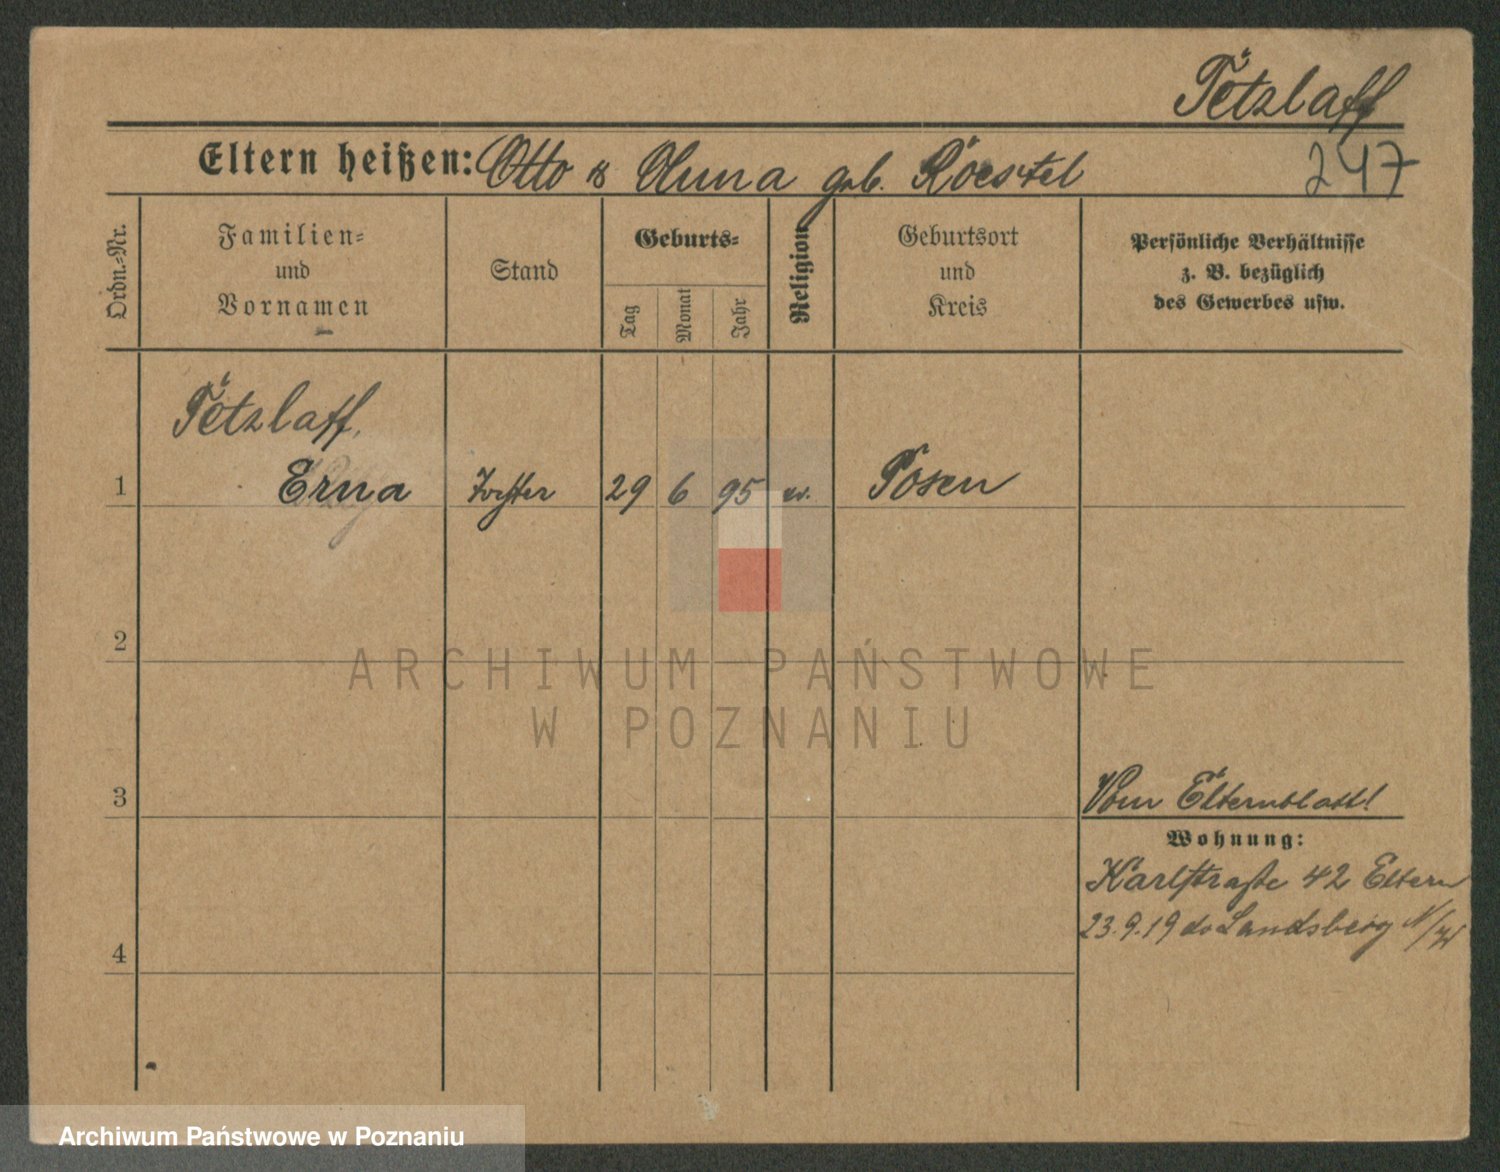 Tetzlaff
Eltern heißen: Otto u Anna geb. Roestel
247
Ordn.-Nr.
Familien-
und
Vornamen
Stand
Geburts-
Tag
Monat
Jahr
Religion
Geburtsort
und
Kreis
Persönliche Verhältnisse
z. B. bezüglich
des Gewerbes usw.
Tetzlaff,
1 Erna Tochter 29 6 95 ev. Posen
2
ARCHIWUM PAŃSTWOWE
W POZNANIU
3
Vom Elternblatt!
Wohnung:
Karlstraße 42 Eltern
23.9.19 Landsberg
4
Archiwum Państwowe w Poznaniu